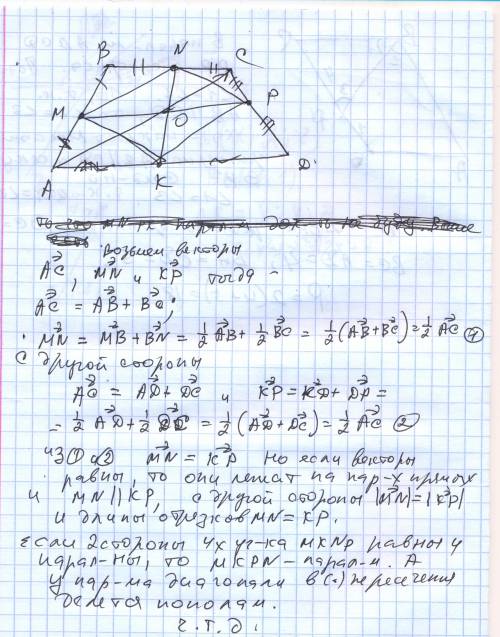 B N C
M O P
A K D
Возьмем векторы
AC, MN и KP тогда
AC = AB + BC;
MN = MB + BN = 1/2 AB + 1/2 BC = 1/2 (AB + BC) = 1/2 AC ①
С другой стороны
AC = AD + DC и KP = KD + DP =
= 1/2 AD + 1/2 DC = 1/2 (AD + DC) = 1/2 AC ②
из ① и ② MN = KP Но если векторы
равны, то они лежат на пар-х прямых
и MN || KP, с другой стороны |MN| = |KP|
и длины отрезков MN = KP.
Если 2 стороны 4х уг-ка MKNP равны и
парал-ны, то MKPN - парал-м. А
у пар-ма диагонали в (.) пересечения
делятся пополам.
ч.т.д.